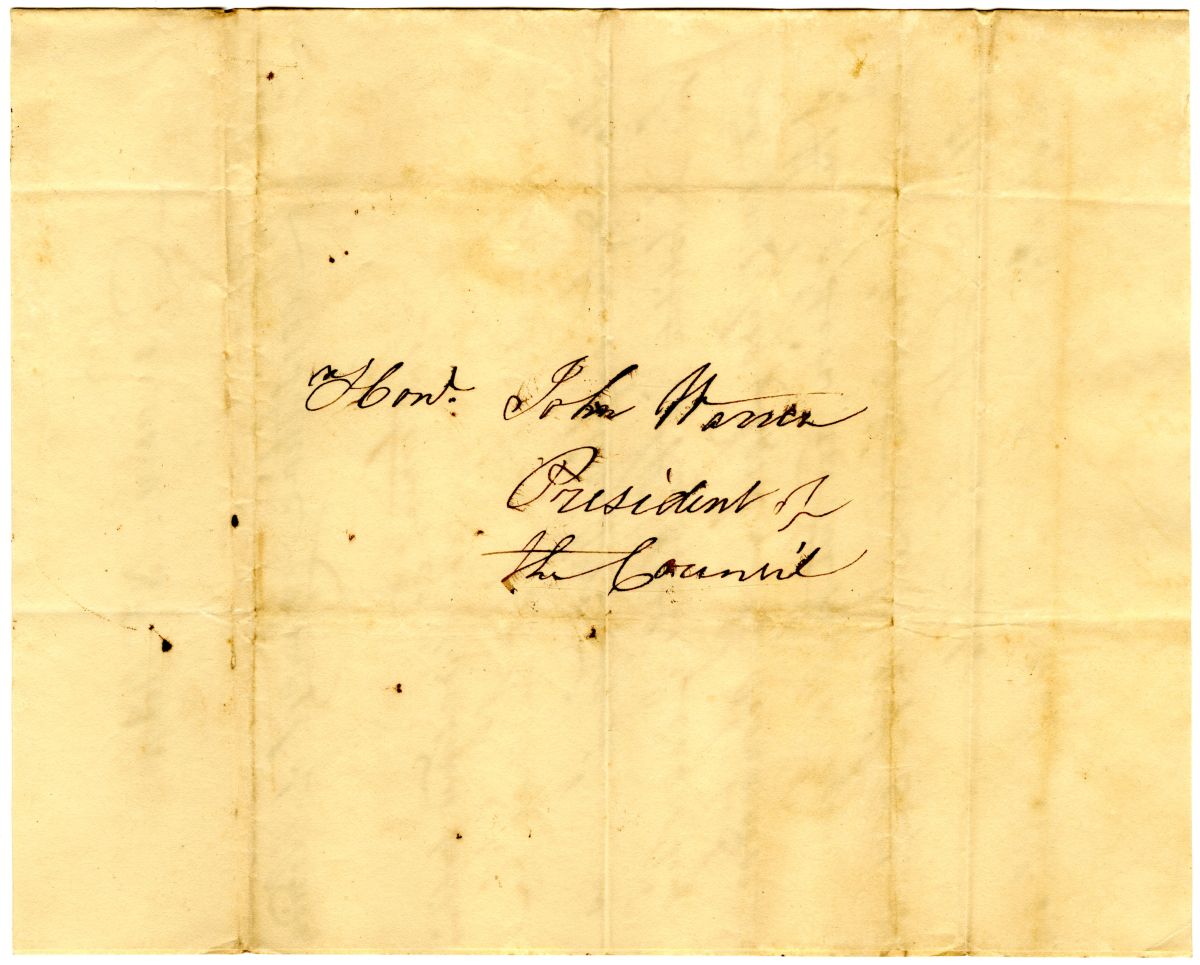 Hond. John Warren
President of
the Council